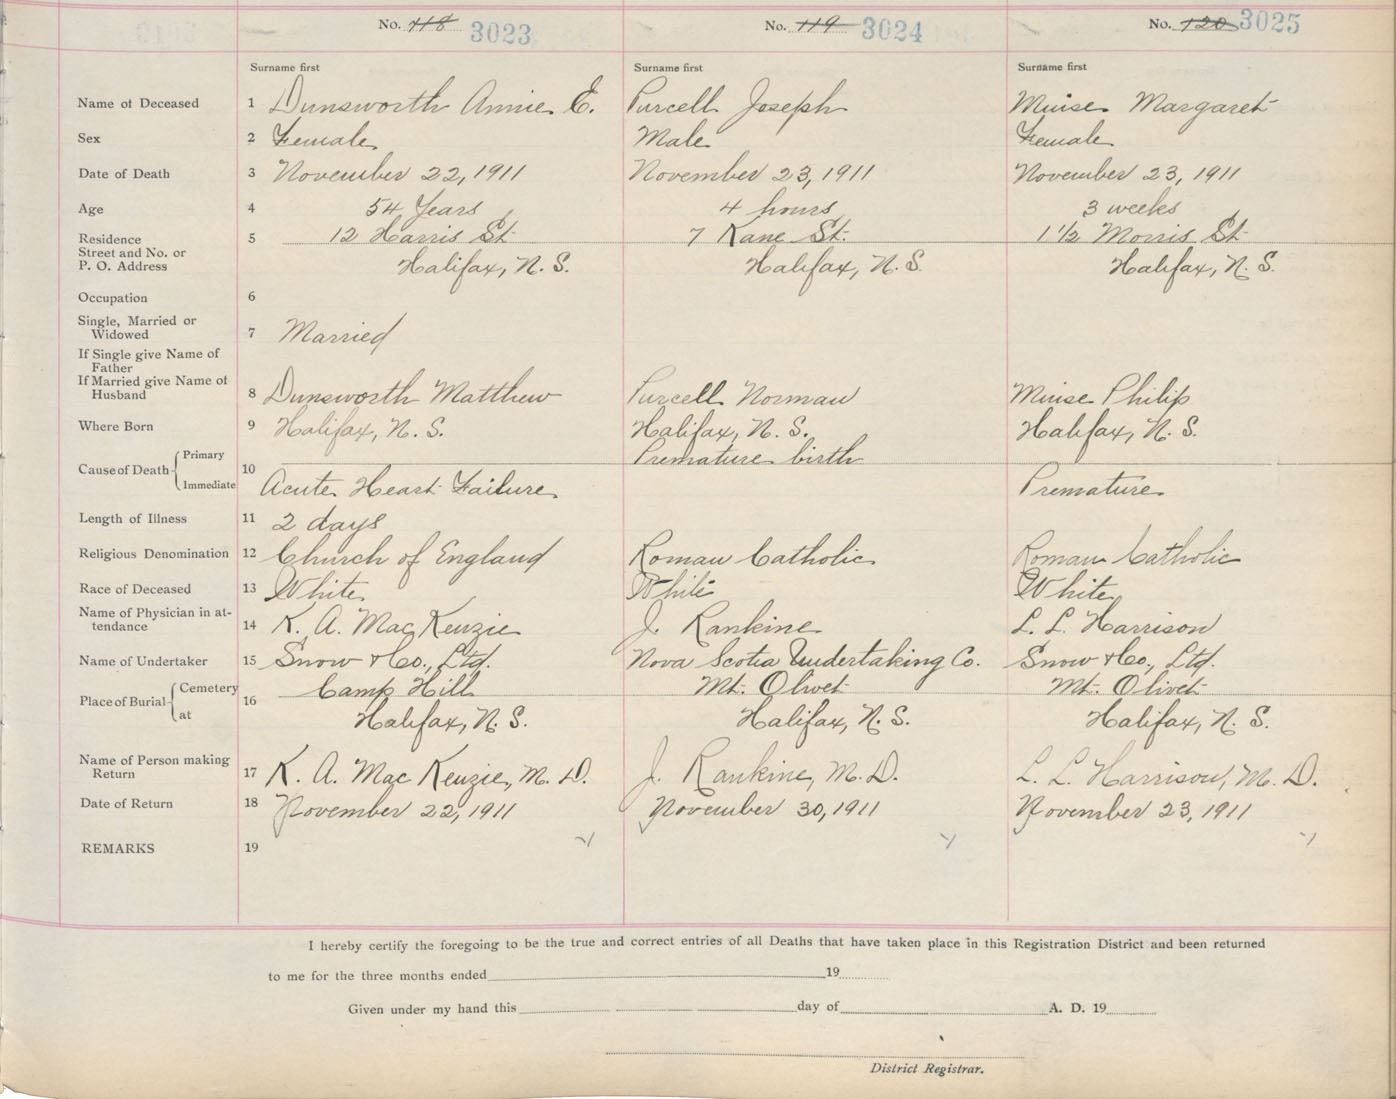 No. 118 3023 No. 119 3024 No. 120 3025
Surname first Surname first Surname first
Name of Deceased 1 Dunsworth Annie E. Purcell Joseph Muise Margaret
Sex 2 Female Male Female
Date of Death 3 November 22, 1911 November 23, 1911 November 23, 1911
Age 4 54 Years 4 hours 3 weeks
Residence 5 12 Harris St. 7 Kane St. 1 1/2 Morris St.
Street and No. or
P. O. Address Halifax, N. S. Halifax, N. S. Halifax, N. S.
Occupation 6
Single, Married or
Widowed 7 Married
If Single give Name of
Father
If Married give Name of
Husband 8 Dunsworth Matthew Purcell Norman Muise Philip
Where Born 9 Halifax, N. S. Halifax, N. S. Halifax, N. S.
Cause of Death Primary 10 Premature birth
Immediate Acute Heart Failure Premature
Length of Illness 11 2 days
Religious Denomination 12 Church of England Roman Catholic Roman Catholic
Race of Deceased 13 White White White
Name of Physician in at-
tendance 14 K. A. MacKenzie J. Rankine L. L. Harrison
Name of Undertaker 15 Snow & Co., Ltd. Nova Scotia Undertaking Co. Snow & Co., Ltd.
Place of Burial Cemetery 16 Camp Hill Mt. Olivet Mt. Olivet
at Halifax, N. S. Halifax, N. S. Halifax, N. S.
Name of Person making
Return 17 K. A. MacKenzie, M. D. J. Rankine, M. D. L. L. Harrison, M. D.
Date of Return 18 November 22, 1911 November 30, 1911 November 23, 1911
REMARKS 19
I hereby certify the foregoing to be the true and correct entries of all Deaths that have taken place in this Registration District and been returned
to me for the three months ended 19
Given under my hand this day of A. D. 19
District Registrar.